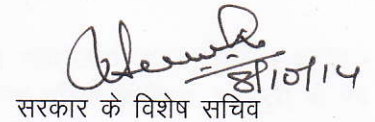 8/10/14
सरकार के विशेष सचिव